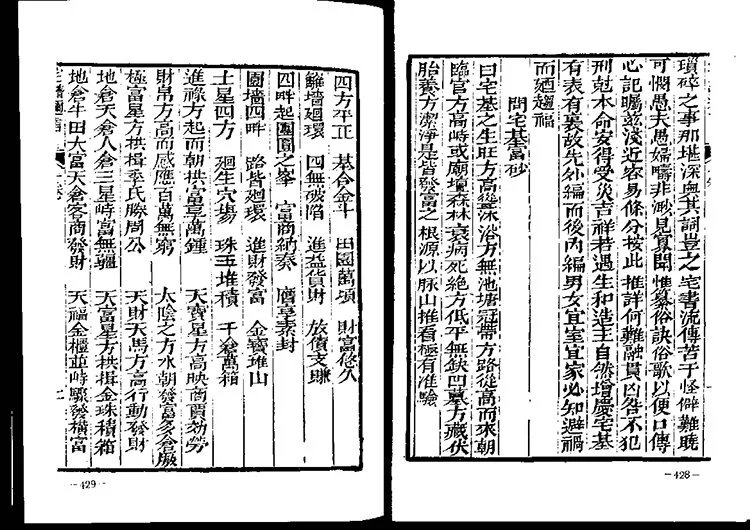 瑣碎之事那堪深與其詞豈之宅書流傳苦于怪僻難曉
可憫愚夫愚婦疇非渺見寡聞惟纂俗訣俗歌以便口傳
心記囑茲淺近容易條分按此推詳何難融貫凶咎不犯
刑剋本命安得受災吉祥若遇生和造主自然增慶宅基
有表有裏故先外編而後內編男女宜室宜家必知避禍
而廼趨福
問宅基富砂
曰宅基之生旺方高從沐浴方無池塘冠帶方路從高而來朝
臨官方高峙或廟壇森林衰病死絕方低平無缺凹墓方藏伏
胎養方潔淨是皆發富之根源以脉山推看極有准驗
四方平正 基合金斗 田園萬頃 財富悠久
籬墻廻環 四無破陷 進益貨財 放債支賺
四畔起團圓之峯 富商納奏 膺享素封
圍墻四畔 路皆廻環 進財發富 金寶堆山
土星四方 廻生穴場 珠玉堆積 千倉萬箱
進祿方起而朝拱富享萬鍾 天寶星方高映商賈効勞
財帛方高而感應百萬無窮 太陰之方水朝發富多倉廒
極富星方拱揖季氏勝周公 天財天馬方高行動發財
地倉天倉人倉三星峙富無疆 大富星方拱揖金珠積箱
地倉牛田大富天倉客商發財 天福金櫃並峙驟發橫富
—428—
—429—